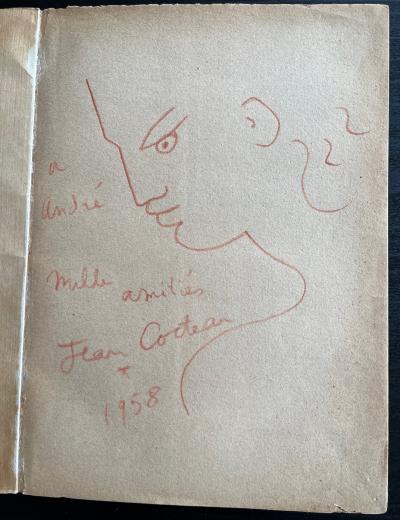 a
André
Mille amitiés
Jean Cocteau
*
1958